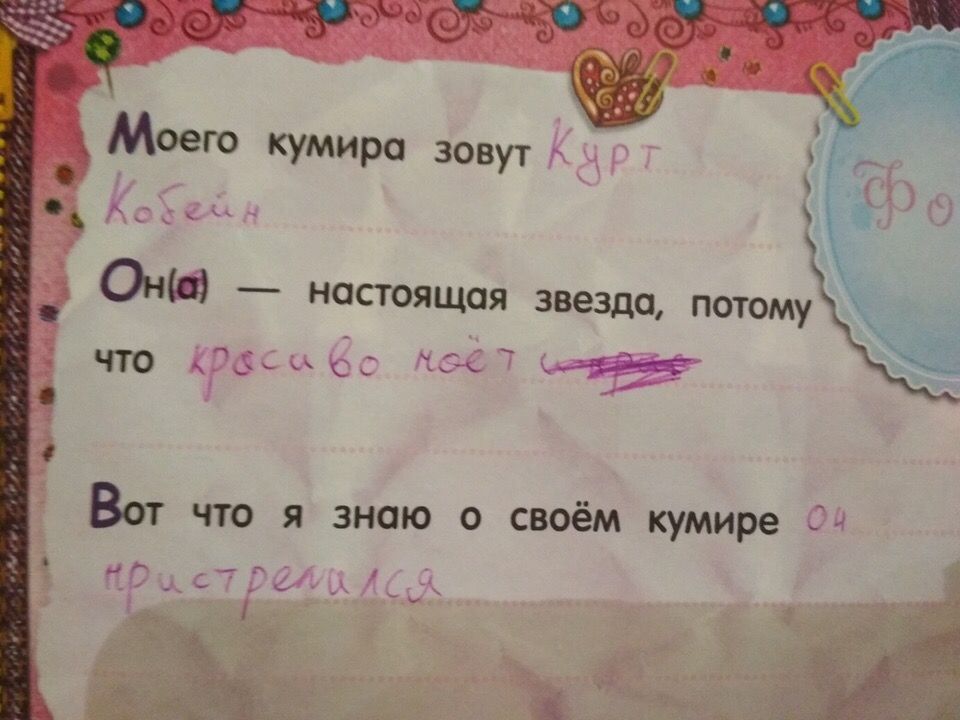 Моего кумира зовут Курт
Кобейн
Он(а) — настоящая звезда, потому
что красиво поёт
Вот что я знаю о своём кумире он
пристрелился
Фо